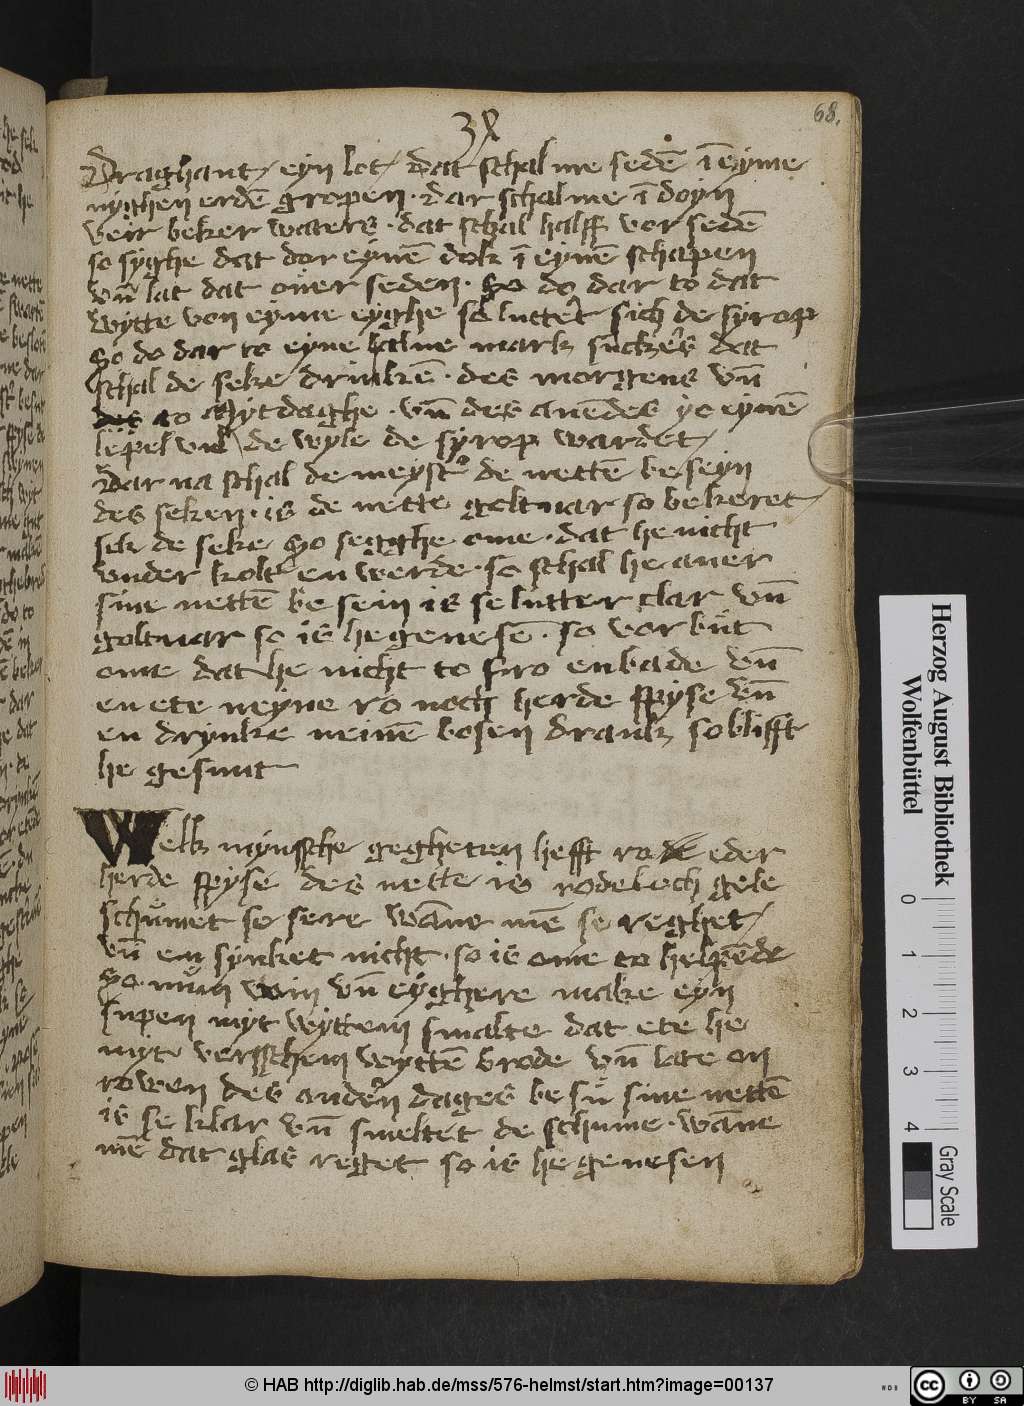 68.
Draghant / eyn lot / dat schal me sedē ī eyme
nyghen erdē gropen · dar schal me ī doyn
veir beker waters · dat schal halff vor sedē
so syghe dat dor eynē dok ī eynē schapen
vn̄ lat dat ouer seden · so do dar to dat
wytte von eyme eyghe so luttert sich de syrop
So do dar to eyne halue mark suckers dat
schal de seke drinkē · des morgens vn̄
to Mytdaghe · vn̄ des auēdes yo eynē
lepel vul de wyle de syrop wardet /
Dar na schal de meyster de nettē beseyn
des seken · is de nette goltuar so bekeret /
sik de seke So segghe ome · dat he nicht
vnder kolt en werde · so schal he auer
sine nettē be sein is se lutter clar vn̄
goltuar so is he genesē · so vor but
ome dat he nicht to fro en bade vn̄
en ete neyne ro noch herde spyse vn̄
en drynke neinē bosen drank so blifft
he gesunt
Welk mynssche gegheten hefft ro eder
herde spyse des nette is rodelech gele
schumet se sere wāne mē se reghet /
vn̄ en synket nicht · so is ome to helpēde
So nym win vn̄ eyghere make eyn
supen myt wyttem smalte dat ete he
myt versschem wyttē brode vn̄ late on
rowen des andern dages be su sine nettē
is se klar vn̄ smeltet de schume · wāne
mē dat glas reget so is he genesen
Herzog August Bibliothek
Wolfenbüttel
0 1 2 3 4
Gray Scale
© HAB http://diglib.hab.de/mss/576-helmst/start.htm?image=00137
WDB
cc BY SA